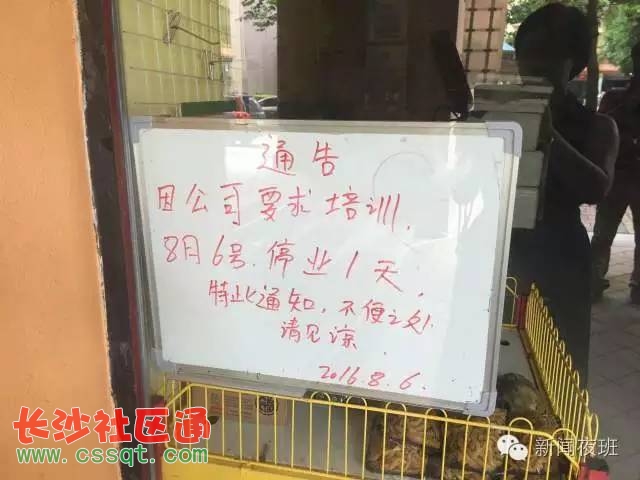 通告
因公司要求培训,
8月6号.停业1天,
特此通知,不便之处
请见谅
2016.8.6.
长沙社区通
www.cssqt.com
新闻夜班